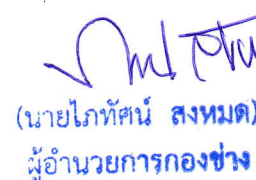 (นายไภทัศน์ สงหมด)
ผู้อำนวยการกองช่าง